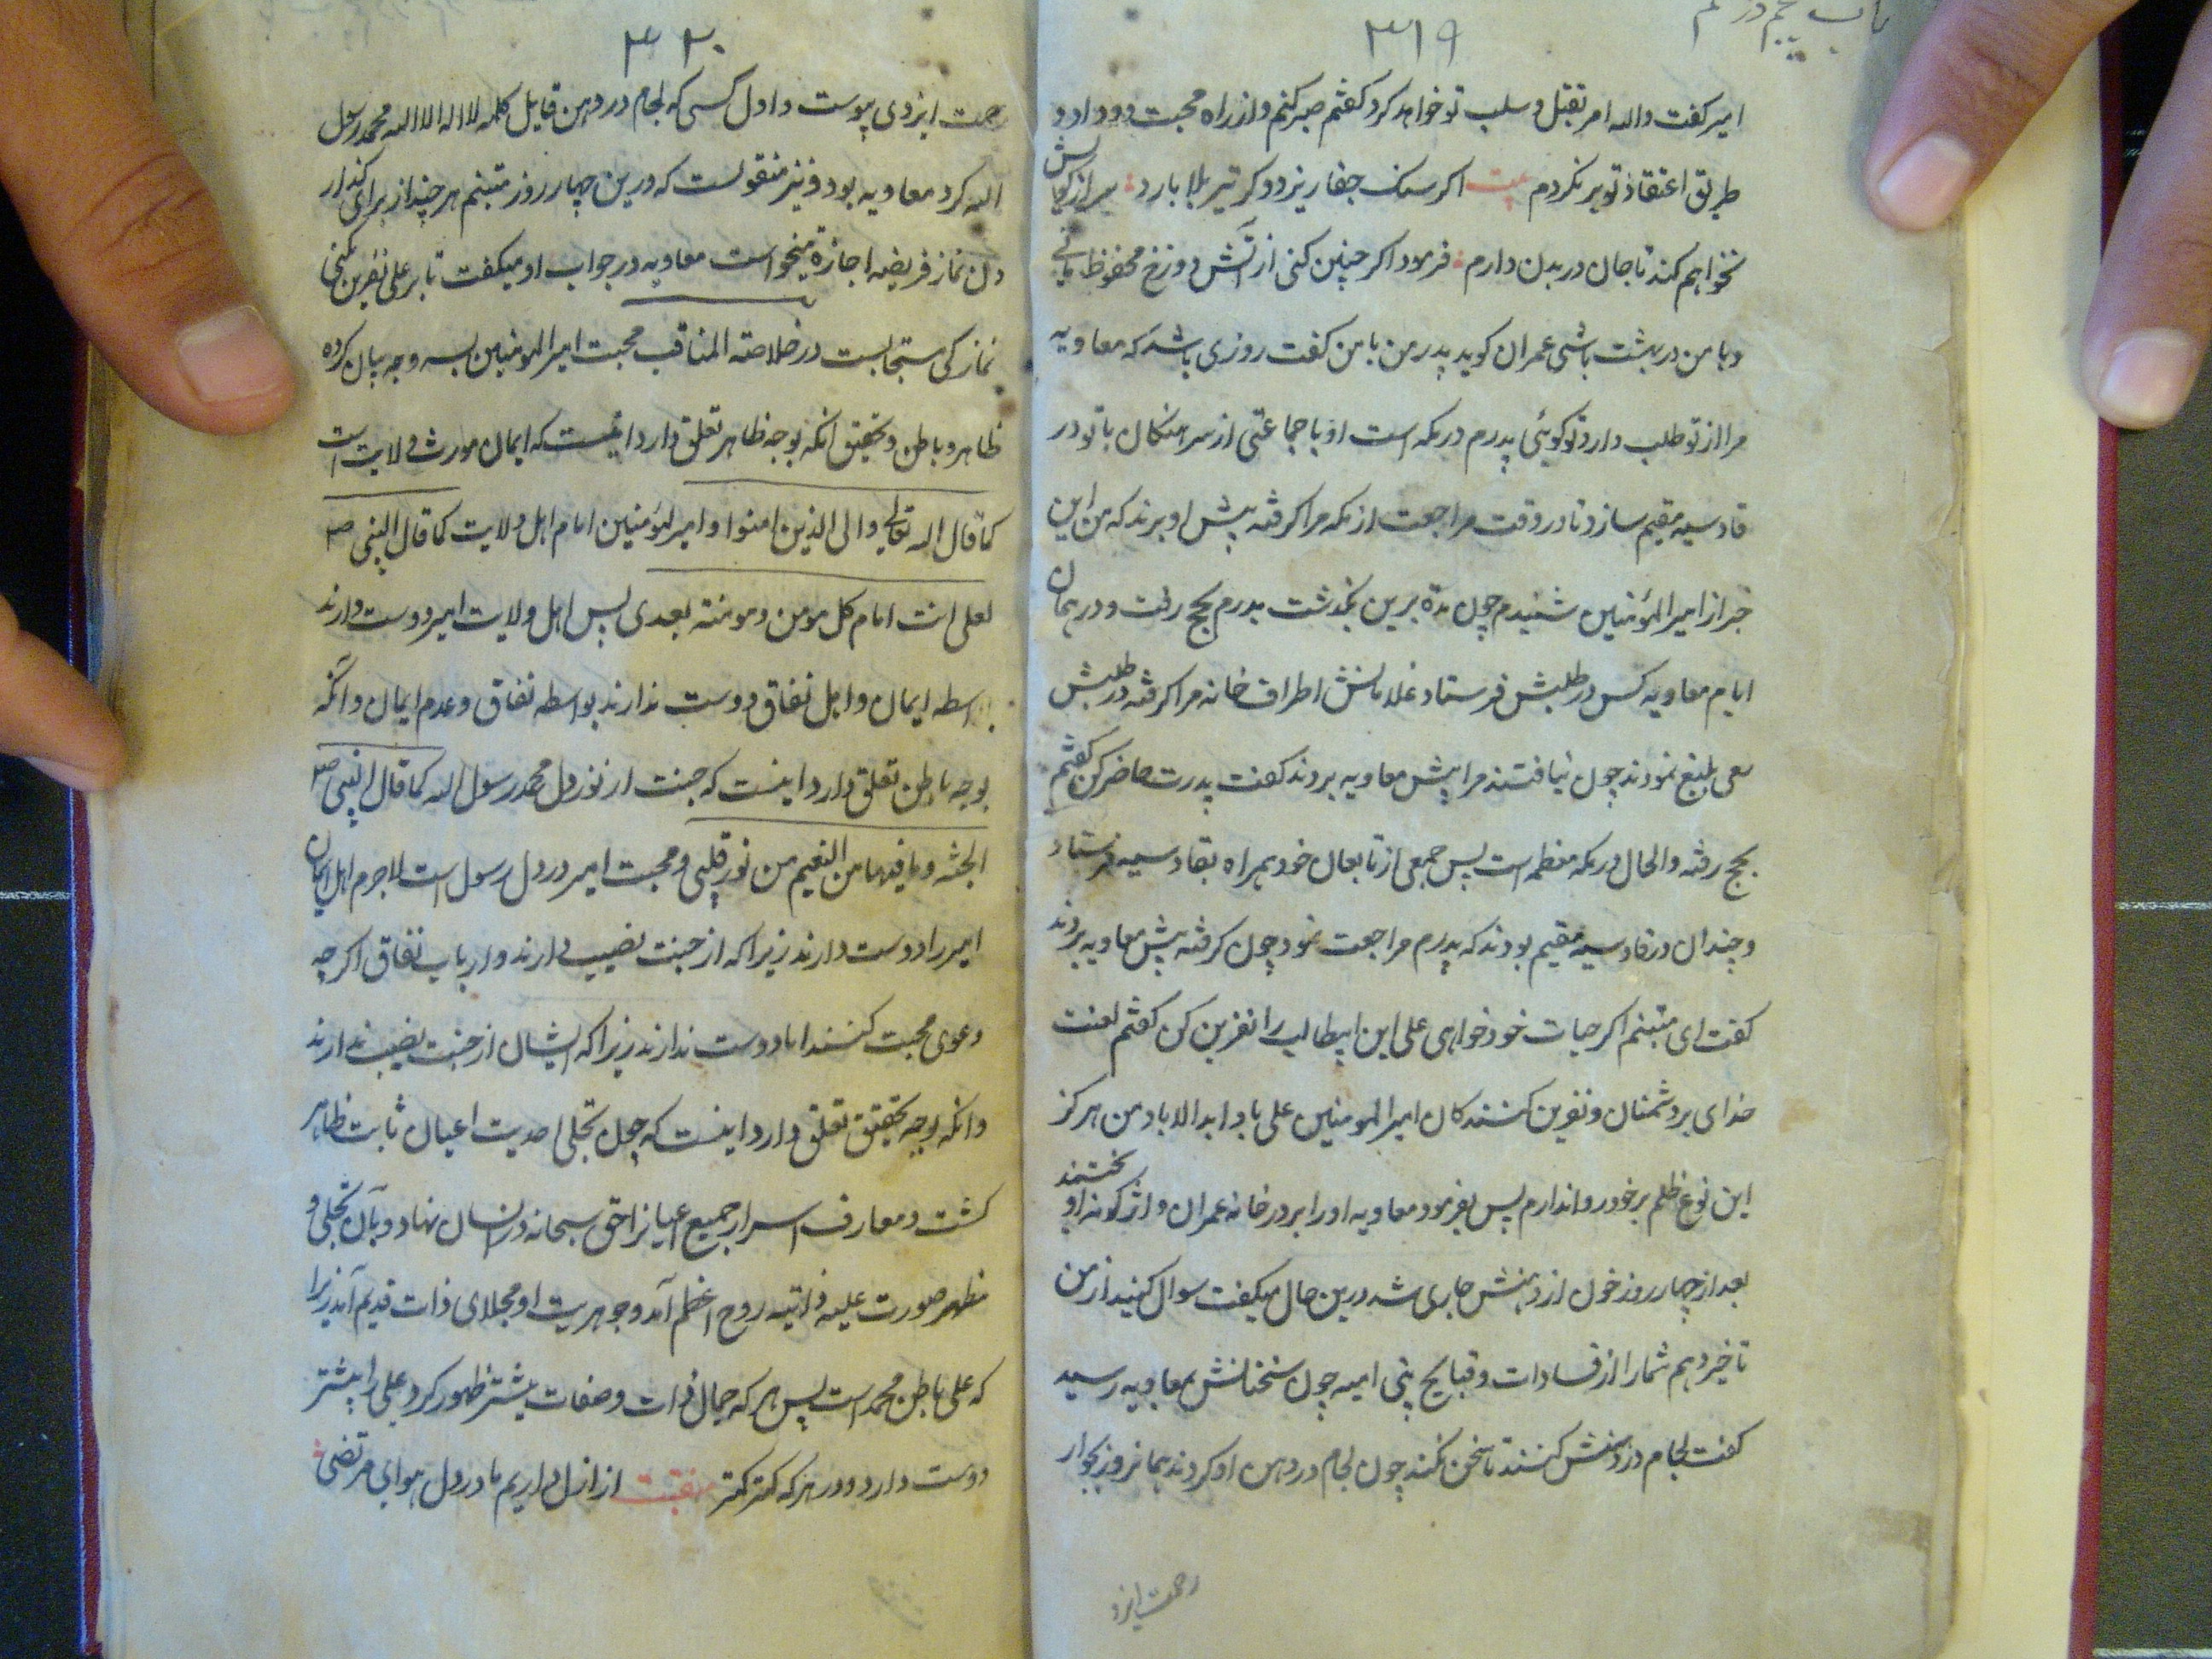 ۳۱۹
امیر گفت والله امر بقتل و سلب تو خواهد کرد گفتم صبر کنم و از راه محبت و وداد و
طریق اعتقاد تو برنگردم بیت اگر سنگ جفا ریزد و گر تیر بلا بارد سر از کویش
نخواهم کند تا جان در بدن دارم فرمود اگر چنین کنی از آتش دوزخ محفوظ مانی
و با من در بهشت باشی عمران گوید پدر من با من گفت روزی باشد که معاویه
مرا از تو طلب دارد تو گوئی پدرم در مکه است او با جماعتی از سرهنگان با تو در
قادسیه مقیم سازد تا در وقت مراجعت از مکه مرا گرفته پیش او برند که من این
خبر از امیرالمؤمنین شنیدم چون مدة برین بگذشت پدرم بحج رفت و در همان
ایام معاویه کس در طلبش فرستاد غلامانش اطراف خانه مرا گرفته در طلبش
سعی بلیغ نمودند چون نیافتند مرا پیش معاویه بردند گفت پدرت حاضر کن گفتم
بحج رفته والحال در مکه معظمه است پس جمعی از تابعان خود همراه بقادسیه فرستاد
و چندان در قادسیه مقیم بودند که پدرم مراجعت نمود چون گرفته پیش معاویه بردند
گفت ای میثم اگر حیات خود خواهی علی ابن ابیطالب را نفرین کن گفتم لعنت
خدای بر دشمنان و نفرین کنندکان امیرالمومنین علی باد ابدالاباد من هرگز
این نوع ظلم بر خود روا ندارم پس بفرمود معاویه او را بر در خانه عمران
بعد از چهار روز خون از دهنش جاری شد درین حال میکفت سوال کنید از من
تا خبر دهم شما را از فسادات و قبایح بنی امیه چون سخنانش بمعاویه رسید
گفت لجام در دهنش کنند تا سخن نکند چون لجام در دهن او کردند همانروز بجوار
رحمت ایزد
۳۲۰
رحمت ایزدی پیوست و اول کسی که لجام در دهن قایل کلمه لا اله الا الله محمد رسول
الله کرد معاویه بود و نیز منقولست که درین چهار روز میثم هر چند از برای گذار
دن نماز فریضه اجازة میخواست معاویه در جواب او میکفت تا بر علی نفرین نکنی
نماز کی مستجابست در خلاصة المناقب محبت امیرالمومنین بسه وجه بیان کرده
ظاهر و باطن و تحقیق آنکه بوجه ظاهر تعلق دارد اینست که ایمان مورث ولایت است
کما قال الله تعالی والی الذین امنوا و امیرالمؤمنین امام اهل ولایت کما قال النبی ص
لعلی انت امام کل مومن و مومنة بعدی پس اهل ولایت امیر دوست دارند
بواسطه ایمان و اهل نفاق دوست ندارند بواسطه نفاق و عدم ایمان و آنکه
بوجه باطن تعلق دارد اینست که جنت از نور دل محمد رسول الله کما قال النبی ص
الجنة و ما فیها من النعیم من نور قلبی و محبت امیر در دل رسول است لاجرم اهل ایمان
امیر را دوست دارند زیرا که از جنت نصیب دارند و ارباب نفاق اگرچه
دعوی محبت کنند اما دوست ندارند زیرا که ایشان از جنت نصیب ندارند
و آنکه بوجه تحقیق تعلق دارد اینست که چون تجلی احدیت اعیان ثابت ظاهر
گشت و معارف اسرار جمیع اعیانرا حق سبحانه در انسان نهاد و بآن تجلی و
مظهر صورت علیه ذاتیه روح اعظم آمد و جوهریت او مجلای ذات قدیم آمد زیرا
که علی باطن محمد است پس هر که جمال ذات و صفات بیشتر ظهور کرد علی را بیشتر
دوست دارد و در هر که کمتر کمتر منقبت از ازل داریم ما در دل هوای مرتضی